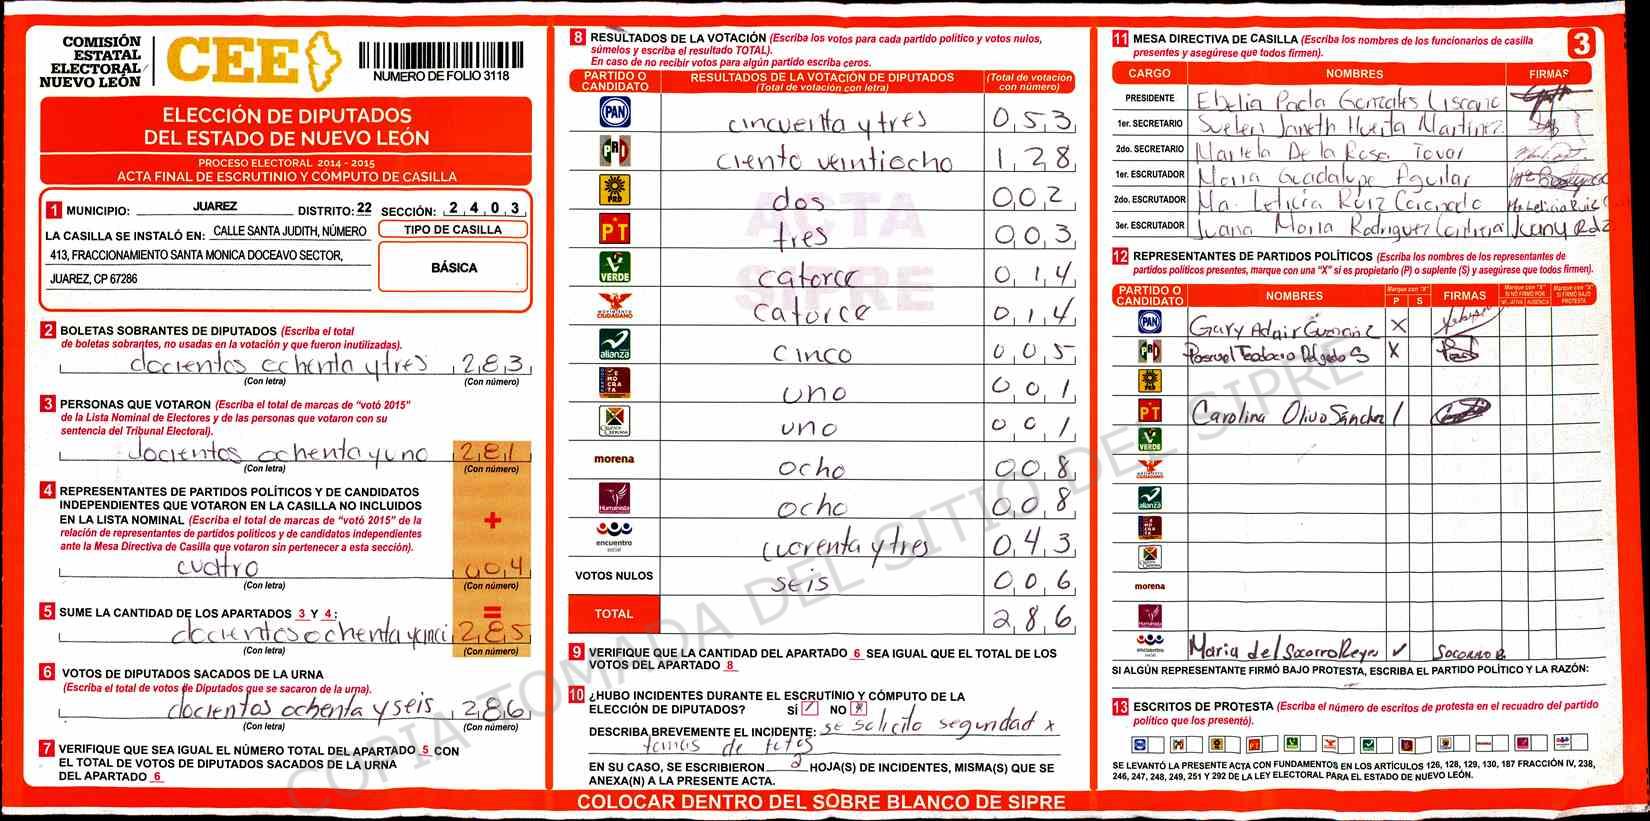 COMISIÓN
ESTATAL
ELECTORAL
NUEVO LEÓN
CEE
NUMERO DE FOLIO 3118
ELECCIÓN DE DIPUTADOS
DEL ESTADO DE NUEVO LEÓN
PROCESO ELECTORAL 2014 - 2015
ACTA FINAL DE ESCRUTINIO Y CÓMPUTO DE CASILLA
1 MUNICIPIO: JUAREZ DISTRITO: 22 SECCIÓN: 2403
LA CASILLA SE INSTALÓ EN: CALLE SANTA JUDITH, NÚMERO
413, FRACCIONAMIENTO SANTA MONICA DOCEAVO SECTOR,
JUAREZ, CP 67286
TIPO DE CASILLA
BÁSICA
2 BOLETAS SOBRANTES DE DIPUTADOS (Escriba el total
de boletas sobrantes, no usadas en la votación y que fueron inutilizadas).
docientos ochenta y tres 283
(Con letra) (Con número)
3 PERSONAS QUE VOTARON (Escriba el total de marcas de “votó 2015”
de la Lista Nominal de Electores y de las personas que votaron con su
sentencia del Tribunal Electoral).
docientos ochenta y uno 281
(Con letra) (Con número)
4 REPRESENTANTES DE PARTIDOS POLÍTICOS Y DE CANDIDATOS
INDEPENDIENTES QUE VOTARON EN LA CASILLA NO INCLUIDOS
EN LA LISTA NOMINAL (Escriba el total de marcas de “votó 2015” de la
relación de representantes de partidos políticos y de candidatos independientes
ante la Mesa Directiva de Casilla que votaron sin pertenecer a esta sección).
+
cuatro 004
(Con letra) (Con número)
=
5 SUME LA CANTIDAD DE LOS APARTADOS 3 Y 4:
docientos ochenta y cinci 285
(Con letra) (Con número)
6 VOTOS DE DIPUTADOS SACADOS DE LA URNA
(Escriba el total de votos de Diputados que se sacaron de la urna).
docientos ochenta y seis 286
(Con letra) (Con número)
7 VERIFIQUE QUE SEA IGUAL EL NÚMERO TOTAL DEL APARTADO 5 CON
EL TOTAL DE VOTOS DE DIPUTADOS SACADOS DE LA URNA
DEL APARTADO 6
8 RESULTADOS DE LA VOTACIÓN (Escriba los votos para cada partido político y votos nulos,
súmelos y escriba el resultado TOTAL).
En caso de no recibir votos para algún partido escriba ceros.
PARTIDO O CANDIDATO RESULTADOS DE LA VOTACIÓN DE DIPUTADOS (Total de votación con letra) (Total de votación con número)
PAN cincuenta y tres 053
PRD ciento veintiocho 128
PRD dos 002
PT tres 003
VERDE catorce 014
MOVIMIENTO CIUDADANO catorce 014
alianza cinco 005
DEMOCRATA uno 001
uno 001
morena ocho 008
Humanista ocho 008
encuentro social cuarenta y tres 043
VOTOS NULOS seis 006
TOTAL 286
ACTA
SIPRE
9 VERIFIQUE QUE LA CANTIDAD DEL APARTADO 6 SEA IGUAL QUE EL TOTAL DE LOS
VOTOS DEL APARTADO 8
10 ¿HUBO INCIDENTES DURANTE EL ESCRUTÍNIO Y CÓMPUTO DE LA
ELECCIÓN DE DIPUTADOS? SÍ / NO X
DESCRIBA BREVEMENTE EL INCIDENTE: se solicito seguridad x
tomas de fotos
EN SU CASO, SE ESCRIBIERON 2 HOJA(S) DE INCIDENTES, MISMA(S) QUE SE
ANEXA(N) A LA PRESENTE ACTA.
COLOCAR DENTRO DEL SOBRE BLANCO DE SIPRE
3
11 MESA DIRECTIVA DE CASILLA (Escriba los nombres de los funcionarios de casilla
presentes y asegúrese que todos firmen).
CARGO NOMBRES FIRMAS
PRESIDENTE Ebelia Paola Gonzales
1er. SECRETARIO Suelen Janeth Huerta Martinez
2do. SECRETARIO Mariela De la Rosa Tovar
1er. ESCRUTADOR Maria Guadalupe Aguilar
2do. ESCRUTADOR Ma. Leticia Ruiz Coronado Ma Leticia Ruiz C
3er. ESCRUTADOR Juana Maria Rodriguez Juany Rdz
12 REPRESENTANTES DE PARTIDOS POLÍTICOS (Escriba los nombres de los representantes de
partidos políticos presentes, marque con una “X” si es propietario (P) o suplente (S) y asegúrese que todos firmen).
PARTIDO O CANDIDATO NOMBRES Marque con “X” P S FIRMAS Marque con “X” SI NO FIRMÓ POR NEGATIVA AUSENCIA Marque con “X” SI FIRMÓ BAJO PROTESTA
PAN Gary Adair X
Pascual Teodocio Delgado S X
PRD
PT Carolina Olivo Sánchez /
VERDE
alianza
morena
Humanista
encuentro social Maria del Socorro Reyes ✓ SOCORRO R.
SI ALGÚN REPRESENTANTE FIRMÓ BAJO PROTESTA, ESCRIBA EL PARTIDO POLÍTICO Y LA RAZÓN:
13 ESCRITOS DE PROTESTA (Escriba el número de escritos de protesta en el recuadro del partido
político que los presentó).
SE LEVANTÓ LA PRESENTE ACTA CON FUNDAMENTOS EN LOS ARTÍCULOS 126, 128, 129, 130, 187 FRACCIÓN IV, 238,
246, 247, 248, 249, 251 Y 292 DE LA LEY ELECTORAL PARA EL ESTADO DE NUEVO LEÓN.
COPIA TOMADA DEL SITIO DEL SIPRE